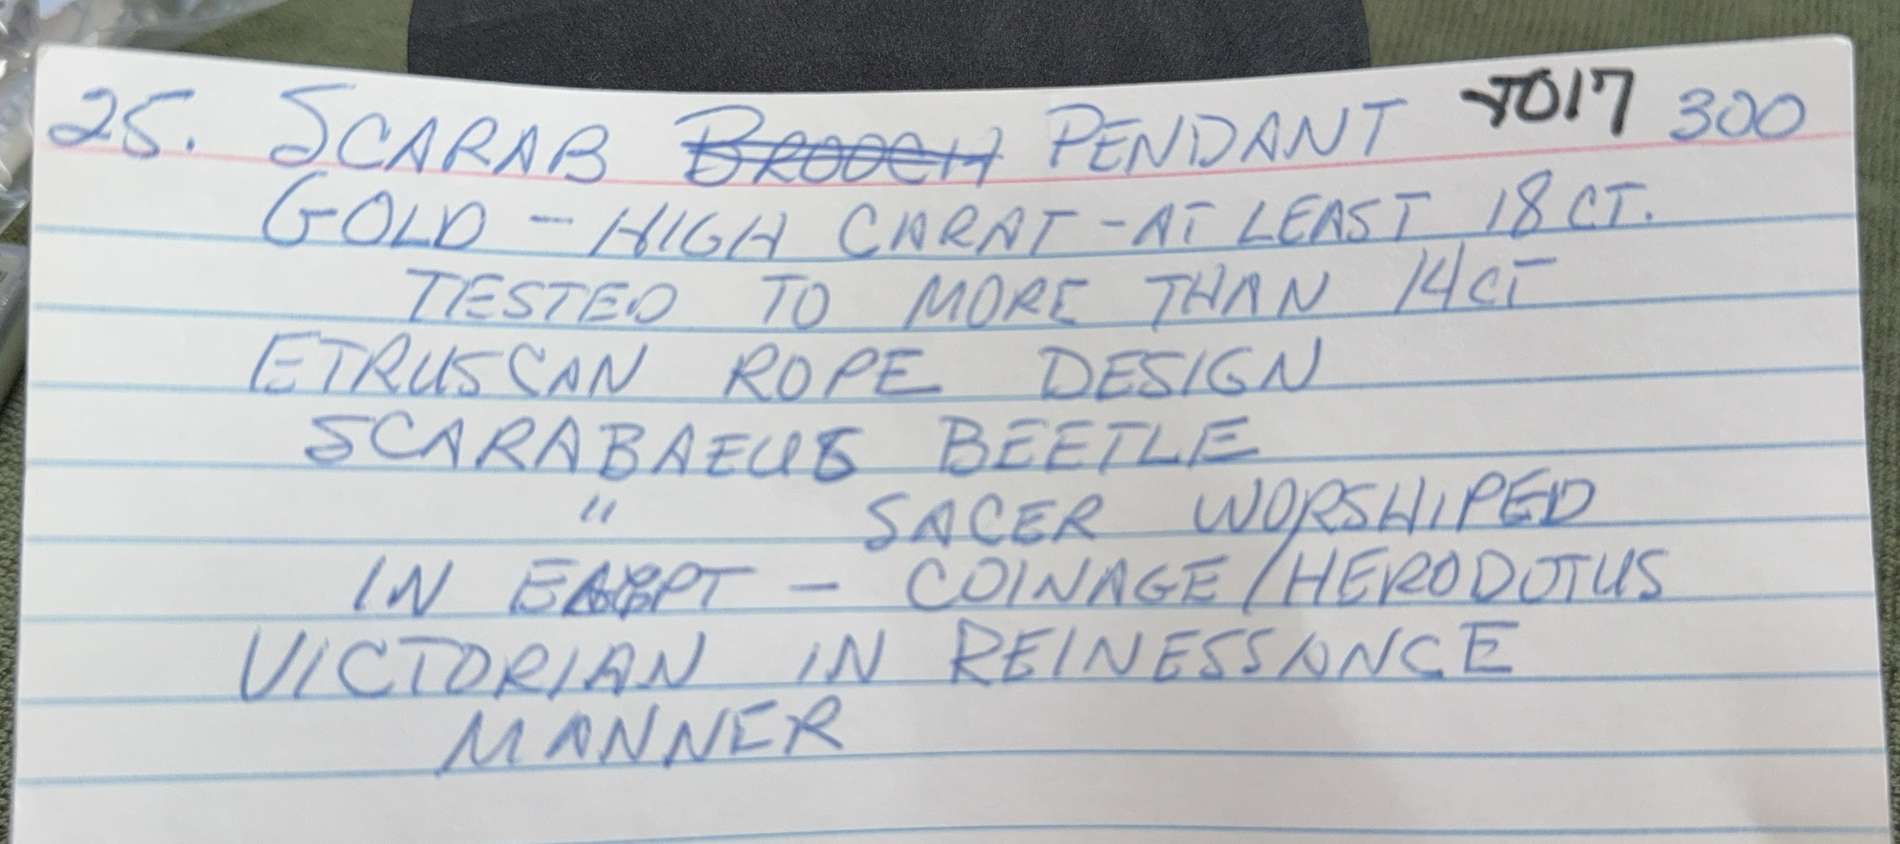 25. SCARAB BROOCH PENDANT 7017 300
GOLD - HIGH CARAT - AT LEAST 18 CT.
TESTED TO MORE THAN 14 CT
ETRUSCAN ROPE DESIGN
SCARABAEUS BEETLE
" SACER WORSHIPED
IN - COINAGE/HERODOTUS
VICTORIAN IN REINESSANCE
MANNER